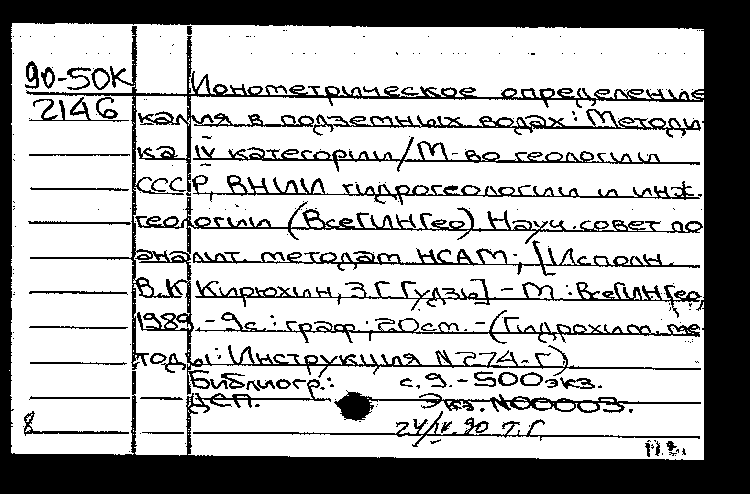 90-50К Ионометрическое определение
2146 калия в подземных водах: Методи-
ка IV категории/М-во геологии
СССР, ВНИИ гидрогеологии и инж.
геологии (ВсеГИНГео). Науч. совет по
аналит. методам НСАМ; [Исполн.
В.К. Кирюхин, З.Г. Гудзь] - М.: ВсеГИНГео,
1989. - 9с.: граф.; 20см. - (Гидрохим. ме-
тоды: Инструкция N 274-Г)
Библиогр.: с. 9. - 500экз.
ДСП. Экз. N00003.
8 24/IV.90 Т.Г.